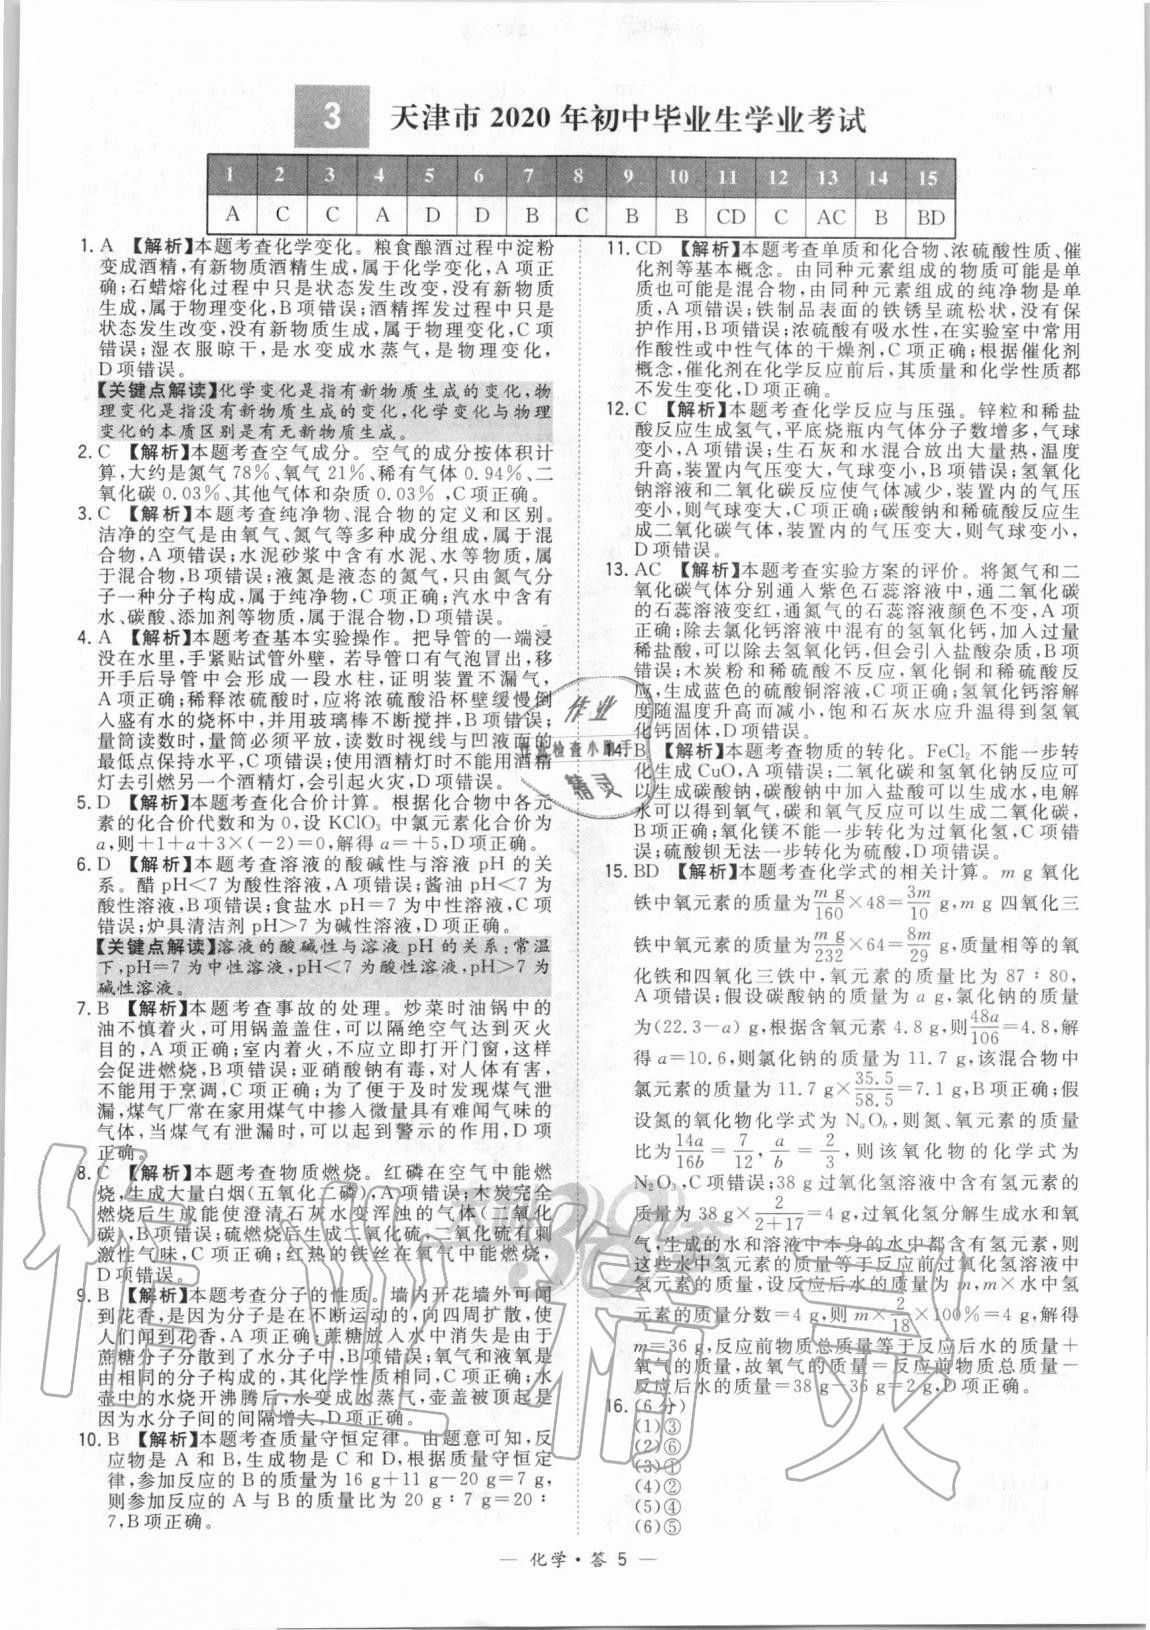 3 天津市 2020 年初中毕业生学业考试
1 2 3 4 5 6 7 8 9 10 11 12 13 14 15
A C C A D D B C B B CD C AC B BD
1. A 【解析】本题考查化学变化。粮食酿酒过程中淀粉
变成酒精,有新物质酒精生成,属于化学变化,A 项正
确;石蜡熔化过程中只是状态发生改变,没有新物质生
成,属于物理变化,B 项错误;酒精挥发过程中只是
状态发生改变,没有新物质生成,属于物理变化,C 项
错误;湿衣服晾干,是水变成水蒸气,是物理变化,
D 项错误。
【关键点解读】化学变化是指有新物质生成的变化,物
理变化是指没有新物质生成的变化,化学变化与物理
变化的本质区别是有无新物质生成。
2. C 【解析】本题考查空气成分。空气的成分按体积计
算,大约是氮气 78%、氧气 21%、稀有气体 0.94%、二
氧化碳 0.03%、其他气体和杂质 0.03%,C 项正确。
3. C 【解析】本题考查纯净物、混合物的定义和区别。
洁净的空气是由氧气、氮气等多种成分组成,属于混
合物,A 项错误;水泥砂浆中含有水泥、水等物质,属
于混合物,B 项错误;液氮是液态的氮气,只由氮气分
子一种分子构成,属于纯净物,C 项正确;汽水中含有
水、碳酸、添加剂等物质,属于混合物,D 项错误。
4. A 【解析】本题考查基本实验操作。把导管的一端浸
没在水里,手紧贴试管外壁,若导管口有气泡冒出,移
开手后导管中会形成一段水柱,证明装置不漏气,
A 项正确;稀释浓硫酸时,应将浓硫酸沿杯壁缓慢倒
入盛有水的烧杯中,并用玻璃棒不断搅拌,B 项错误;
量筒读数时,量筒必须平放,读数时视线与凹液面的
最低点保持水平,C 项错误;使用酒精灯时不能用酒精
灯去引燃另一个酒精灯,会引起火灾,D 项错误。
5. D 【解析】本题考查化合价计算。根据化合物中各元
素的化合价代数和为 0,设 KClO₃ 中氯元素化合价为
a,则+1+a+3×(-2)=0,解得 a=+5,D 项正确。
6. D 【解析】本题考查溶液的酸碱性与溶液 pH 的关
系。醋 pH<7 为酸性溶液,A 项错误;酱油 pH<7 为
酸性溶液,B 项错误;食盐水 pH=7 为中性溶液,C 项
错误;炉具清洁剂 pH>7 为碱性溶液,D 项正确。
【关键点解读】溶液的酸碱性与溶液 pH 的关系:常温
下,pH=7 为中性溶液,pH<7 为酸性溶液,pH>7 为
碱性溶液。
7. B 【解析】本题考查事故的处理。炒菜时油锅中的
油不慎着火,可用锅盖盖住,可以隔绝空气达到灭火
目的,A 项正确;室内着火,不应立即打开门窗,这样
会促进燃烧,B 项错误;亚硝酸钠有毒,对人体有害,
不能用于烹调,C 项正确;为了便于及时发现煤气泄
漏,煤气厂常在家用煤气中掺入微量具有难闻气味的
气体,当煤气有泄漏时,可以起到警示的作用,D 项
正确。
8. C 【解析】本题考查物质燃烧。红磷在空气中能燃
烧,生成大量白烟(五氧化二磷),A 项错误;木炭完全
燃烧后生成能使澄清石灰水变浑浊的气体(二氧化
碳),B 项错误;硫燃烧后生成二氧化硫,二氧化硫有刺
激性气味,C 项正确;红热的铁丝在氧气中能燃烧,
D 项错误。
9. B 【解析】本题考查分子的性质。墙内开花墙外可闻
到花香,是因为分子是在不断运动的,向四周扩散,使
人们闻到花香,A 项正确;蔗糖放入水中消失是由于
蔗糖分子分散到了水分子中,B 项错误;氧气和液氧是
由相同的分子构成的,其化学性质相同,C 项正确;水
壶中的水烧开沸腾后,水变成水蒸气,壶盖被顶开,是
因为水分子间的间隔增大,D 项正确。
10. B 【解析】本题考查质量守恒定律。由题意可知,反
应物是 A 和 B,生成物是 C 和 D,根据质量守恒定
律,参加反应的 B 的质量为 16 g+11 g-20 g=7 g,
则参加反应的 A 与 B 的质量比为 20 g∶7 g=20∶
7,B 项正确。
11. CD 【解析】本题考查单质和化合物、浓硫酸性质、催
化剂等基本概念。由同种元素组成的物质可能是单
质也可能是混合物,由同种元素组成的纯净物是单
质,A 项错误;铁制品表面的铁锈呈疏松状,没有保
护作用,B 项错误;浓硫酸有吸水性,在实验室中常用
作酸性或中性气体的干燥剂,C 项正确;根据催化剂
概念,催化剂在化学反应前后,其质量和化学性质都
不发生变化,D 项正确。
12. C 【解析】本题考查化学反应与压强。锌粒和稀盐
酸反应生成氢气,平底烧瓶内气体分子数增多,气球
变小,A 项错误;生石灰和水混合放出大量热,温度
升高,装置内气压变大,气球变小,B 项错误;氢氧化
钠溶液和二氧化碳反应使气体减少,装置内的气压
变小,则气球变大,C 项正确;碳酸钠和稀硫酸反应生
成二氧化碳气体,装置内的气压变大,则气球变小,
D 项错误。
13. AC 【解析】本题考查实验方案的评价。将氮气和二
氧化碳气体分别通入紫色石蕊溶液中,通二氧化碳
的石蕊溶液变红,通氮气的石蕊溶液颜色不变,A 项
正确;除去氯化钙溶液中混有的氢氧化钙,加入过量
稀盐酸,可以除去氢氧化钙,但会引入盐酸杂质,B 项
错误;木炭粉和稀硫酸不反应,氧化铜和稀硫酸反
应,生成蓝色的硫酸铜溶液,C 项正确;氢氧化钙溶解
度随温度升高而减小,饱和石灰水应升温得到氢氧
化钙固体,D 项错误。
14. B 【解析】本题考查物质的转化。FeCl₂ 不能一步转
化生成 CuO,A 项错误;二氧化碳和氢氧化钠反应可
以生成碳酸钠,碳酸钠中加入盐酸可以生成水,电解
水可以得到氧气,碳和氧气反应可以生成二氧化碳,
B 项正确;氧化镁不能一步转化为过氧化氢,C 项错
误;硫酸钡无法一步转化为硫酸,D 项错误。
15. BD 【解析】本题考查化学式的相关计算。m g 氧化
铁中氧元素的质量为 m g/160×48=3m/10 g,m g 四氧化三
铁中氧元素的质量为 m g/232×64=8m/29 g,质量相等的氧
化铁和四氧化三铁中,氧元素的质量比为 87∶80,
A 项错误;假设碳酸钠的质量为 a g,氯化钠的质量
为(22.3-a) g,根据含氧元素 4.8 g,则48a/106=4.8,解
得 a=10.6,则氯化钠的质量为 11.7 g,该混合物中
氯元素的质量为 11.7 g×35.5/58.5=7.1 g,B 项正确;假
设氮的氧化物化学式为 NₐO_b,则氮、氧元素的质量
比为14a/16b=7/12,a/b=2/3,则该氧化物的化学式为
N₂O₃,C 项错误;38 g 过氧化氢溶液中含有氢元素的
质量为 38 g×2/(2+17)=4 g,过氧化氢分解生成水和氧
气,生成的水和溶液中本身的水中都含有氢元素,则
这些水中氢元素的质量等于反应前过氧化氢溶液中
氢元素的质量,设反应后水的质量为 m,m×水中氢
元素的质量分数=4 g,则 m×2/18×100%=4 g,解得
m=36 g,反应前物质总质量等于反应后水的质量+
氧气的质量,故氧气的质量=反应前物质总质量-
反应后水的质量=38 g-36 g=2 g,D 项正确。
16. (6 分)
(1)③
(2)⑥
(3)①
(4)②
(5)④
(6)⑤
作业
作业检查小助手
精灵
作业精灵
— 化学·答 5 —